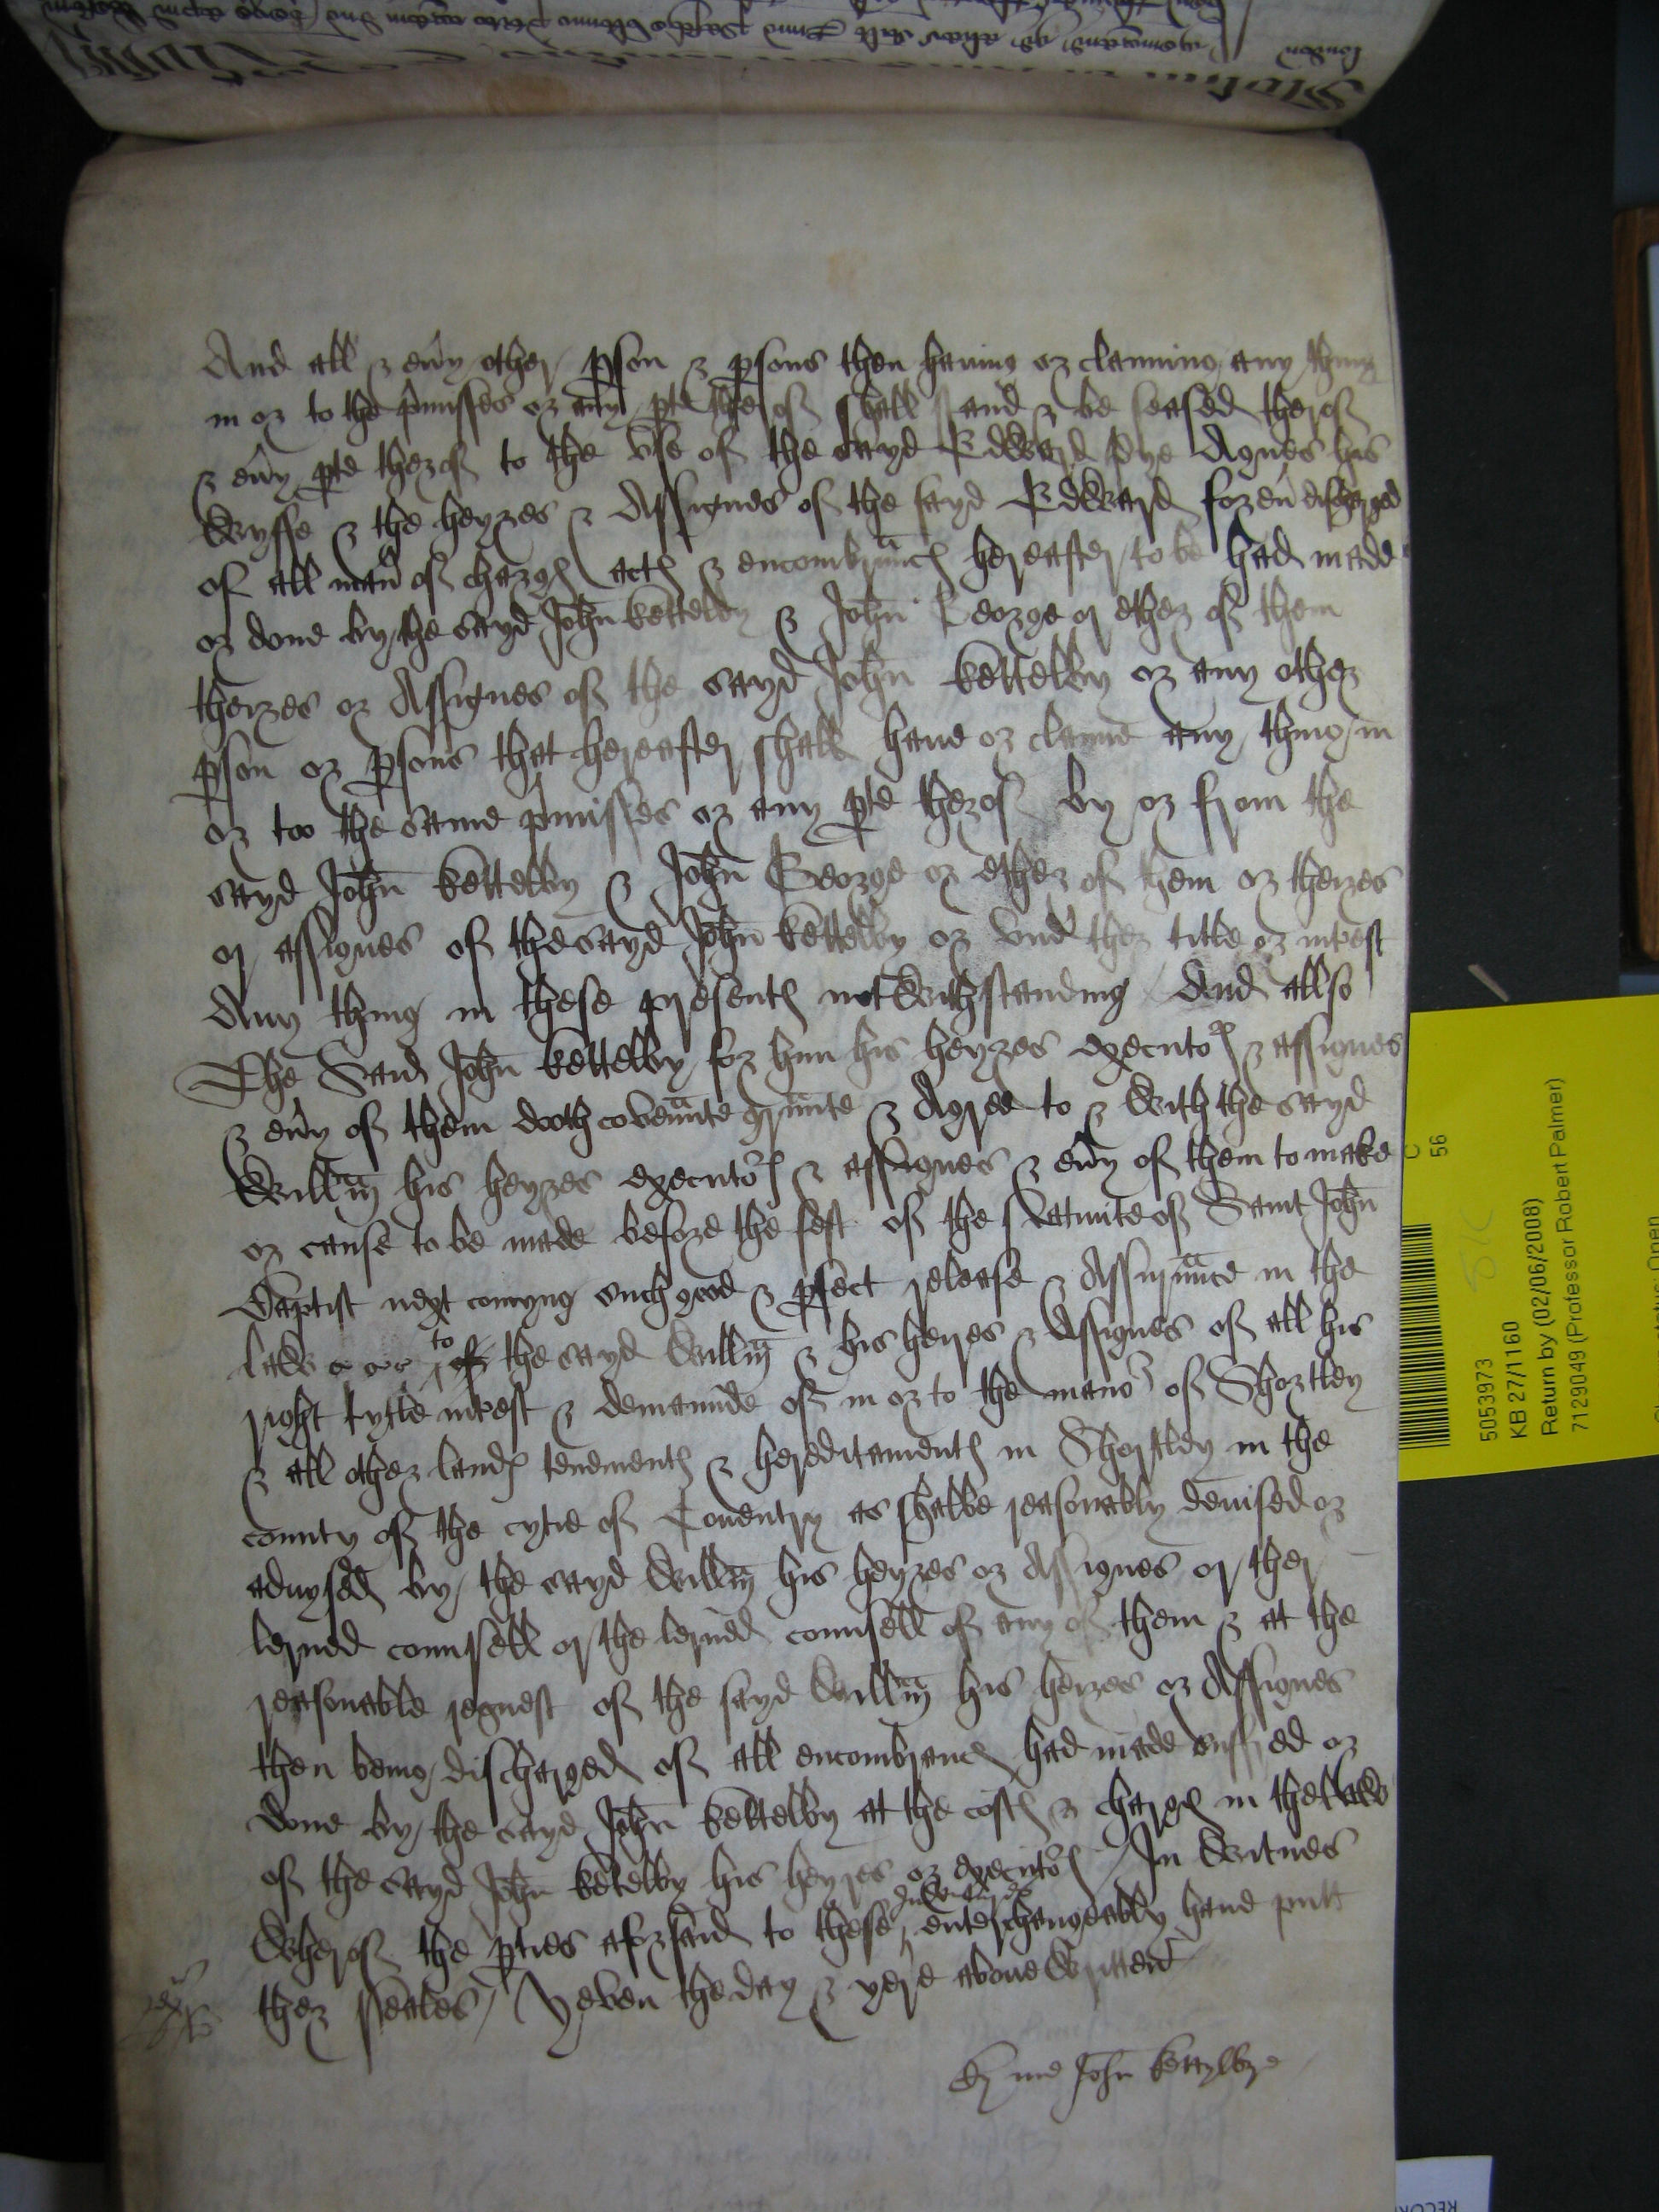 And all & eu'y other p'son & p'sons then hauing or clamming any thing
in or to the p'misses or any p'te therof shall stand & be seased therof
& eu'y p'te therof to the vse of the sayd Edward Pye Agnes his
wyffe & the heyres & Assignes of the sayd Edward for eu' discharged
of all man' of charges actes & encombraunces hereafter to be had made
or done by the sayd John kettelby & John George or ether of them
theires or Assignes of the sayd John kettelby or any other
p'son or p'sons that hereafter shall haue or clame any thing in
or too the same p'misses or any p'te therof by or from the
sayd John kettelby & John George or ether of them or theires
or assignes of the sayd John kettelby or vnd' ther title or int'est
Any thing in these presentes notwithstanding And allso
The Said John kettelby for him his heyres executors & assignes
& eu'y of them doth covenaunte graunte & Agree to & with the sayd
Will'm his heyres executors & assignes & eu'y of them to make
or cause to be made before the fest of the Natiuite of Saint John
Baptist next comyng such good & p'fect release & Assuraunce in the
law to of the sayd Will'm & his heires & Assignes of all his
right tytle int'est & demaunde of in or to the manor of Shortley
& all other landes tenementes & hereditamentes in Shortley in the
county of the cytie of Couentry as shalbe reasonably deuised or
aduysed by the sayd Will'm his heyres or Assignes or ther
lerned counsell or the lerned counsell of any of them & at the
reasonable request of the sayd Will'm his heires or Assignes
then being discharged of all encombrances had made suffred or
done by the sayd John kettelby at the costes & charges in the lawe
of the sayd John ketelby his heyres or executors In Witnes
Wherof the p'ties aforsaid to these Indentures enterchangeably haue putt
ther seales Yeven the day & yere aboue written
By me John kettylbye
5053973
KB 27/1160
Return by (02/06/2008)
7129049 (Professor Robert Palmer)
C
56